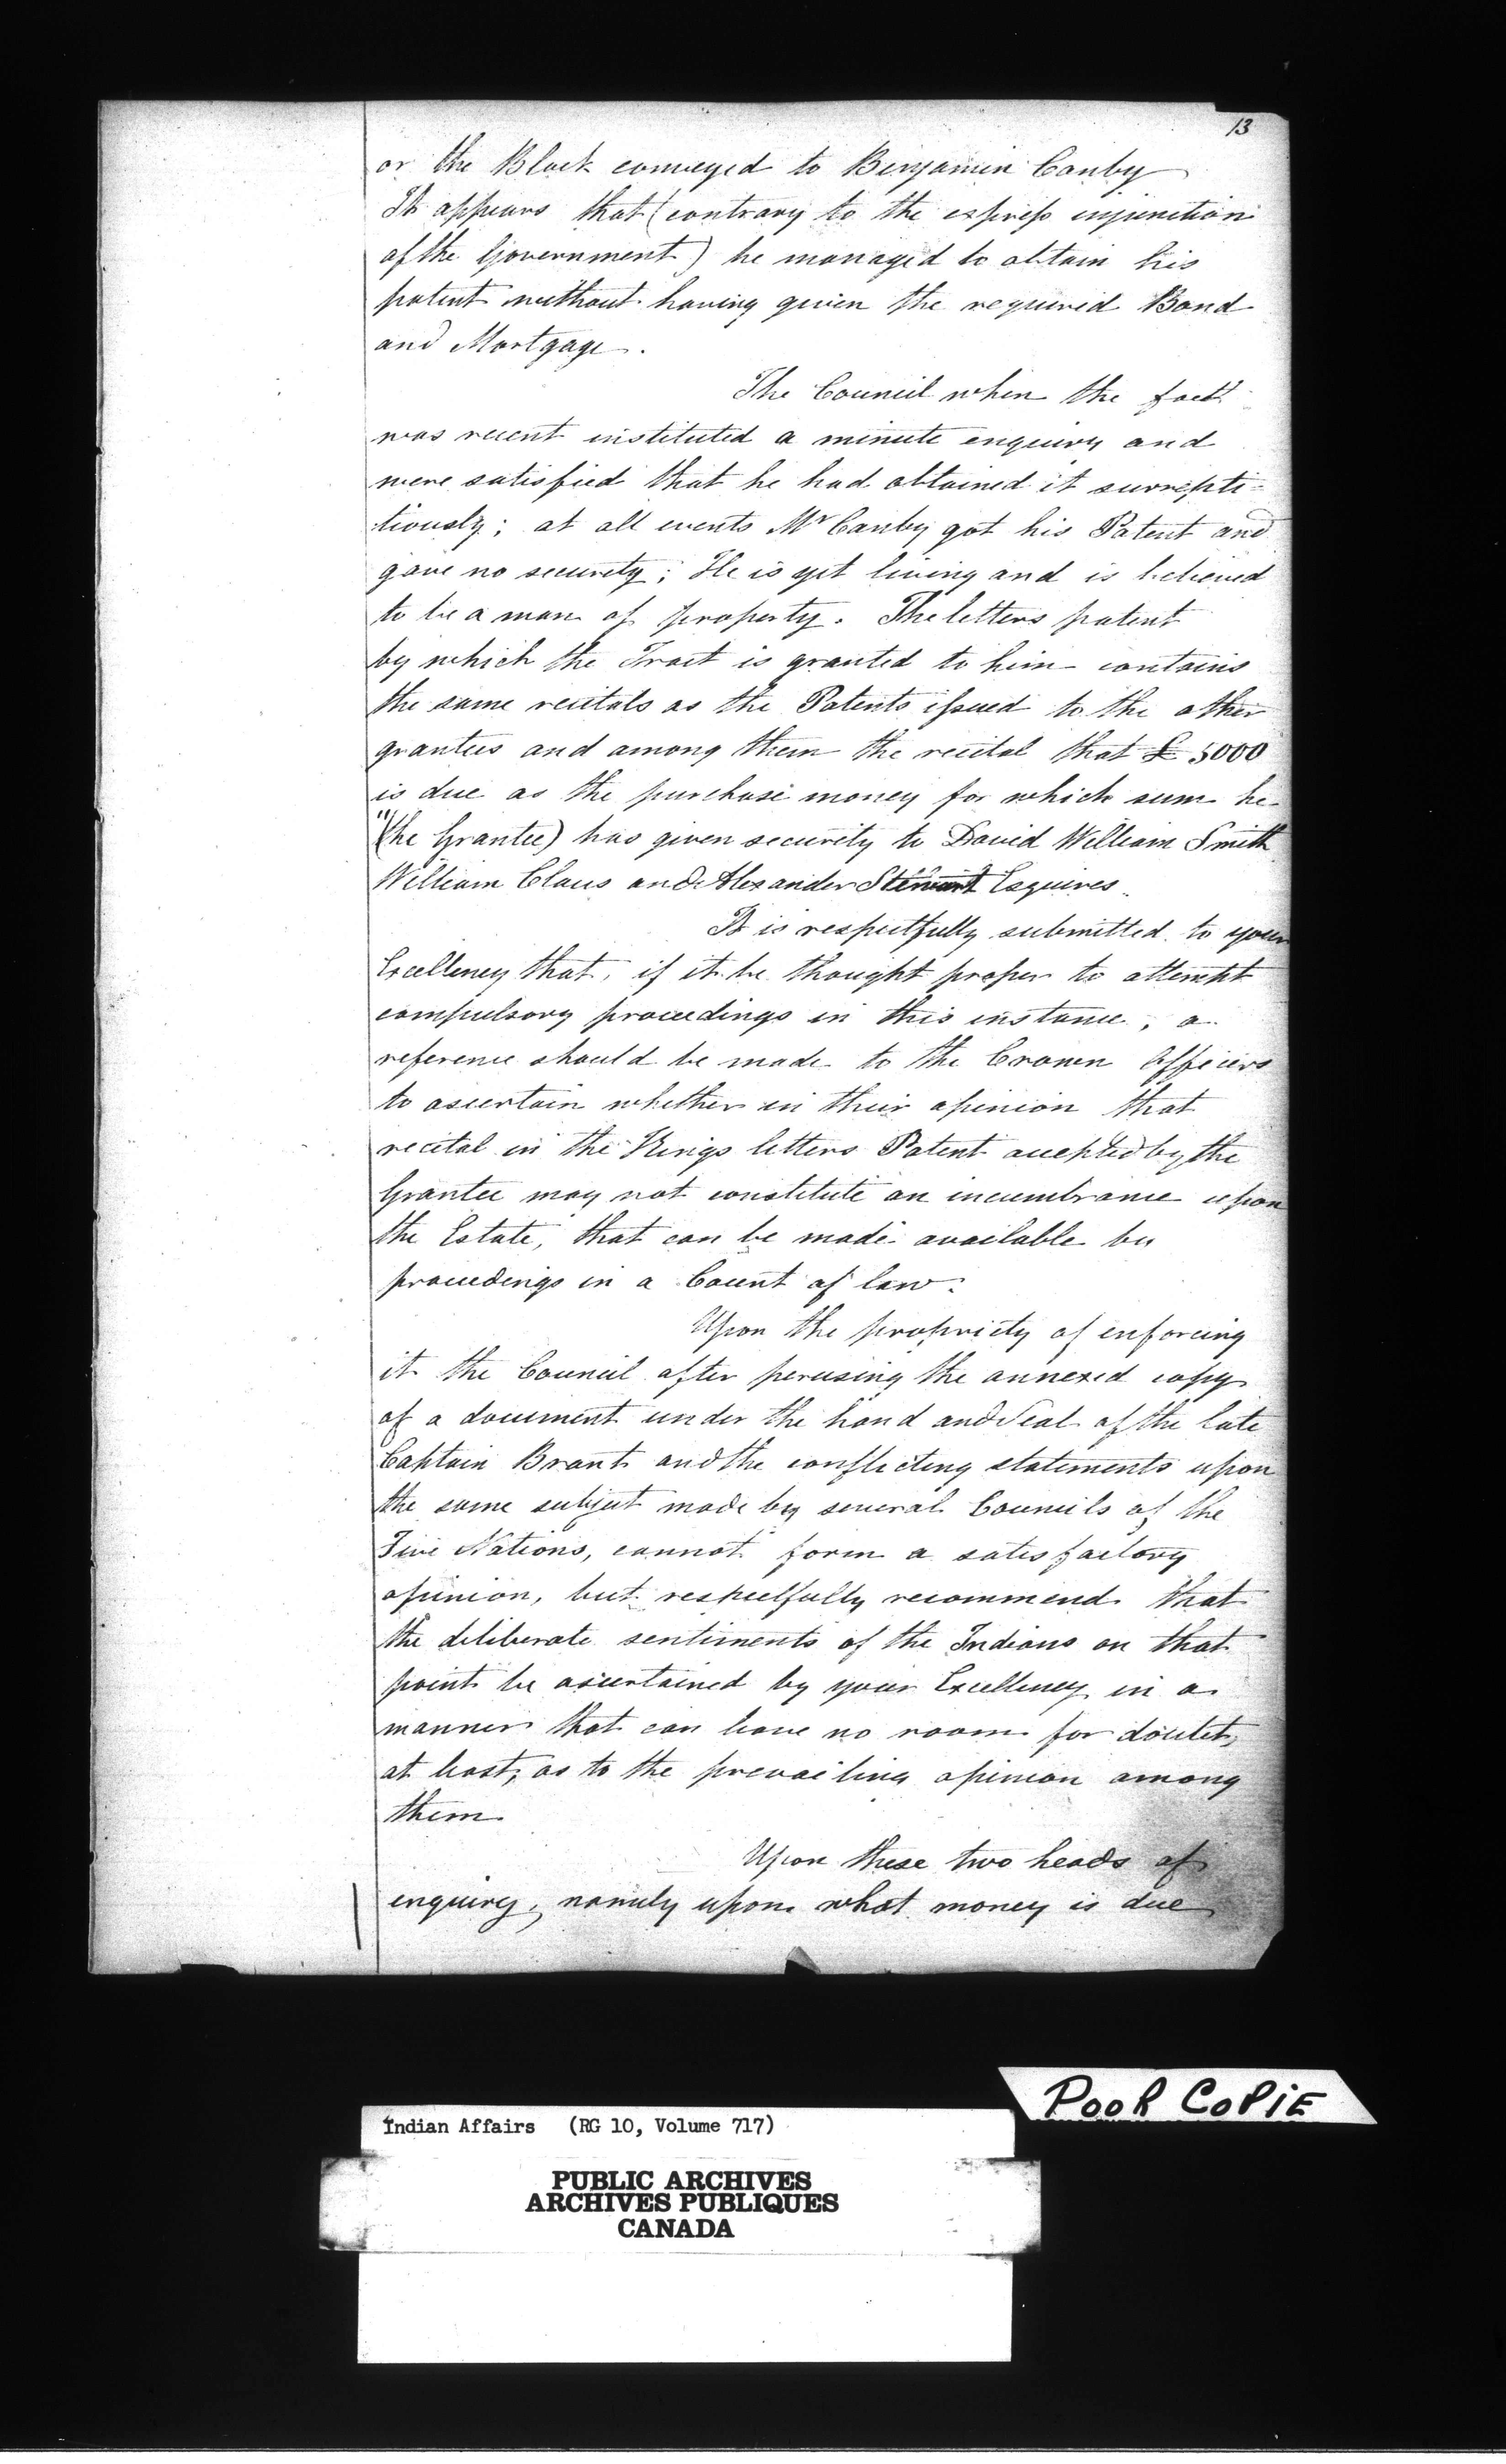 13
or the Block conveyed to Benjamin Canby
It appears that (contrary to the express injunction
of the Government) he managed to obtain his
patent without having given the required Bond
and Mortgage.
The Council when the fact
was recent instituted a minute enquiry and
were satisfied that he had obtained it surrepti=
tiously; at all events Mr Canby got his Patent and
gave no security; He is yet living and is believed
to be a man of property. The letters patent
by which the Tract is granted to him contains
the same recitals as the Patents issued to the other
grantees and among them the recital that £5000
is due as the purchase money for which sum he
"(the Grantee) has given security to David William Smith
William Claus and Alexander Stewart Esquires.
It is respectfully submitted to your
Excellency that, if it be thought proper to attempt
compulsory proceedings in this instance, a
reference should be made to the Crown Officers
to ascertain whether in their opinion that
recital in the Kings letters Patent accepted by the
Grantee may not constitute an incumbrance upon
the Estate, that can be made available by
proceedings in a Court of law.
Upon the propriety of enforcing
it the Council after perusing the annexed copy
of a document under the hand and Seal of the late
Captain Brant and the conflicting statements upon
the same subject made by several Councils of the
Five Nations, cannot form a satisfactory
opinion, but respectfully recommend that
the deliberate sentiments of the Indians on that
point be ascertained by your Excellency in a
manner that can leave no room for doubt,
at least, as to the prevailing opinion among
them
Upon these two heads of
enquiry, namely upon what money is due
POOR COPIE
Indian Affairs (RG 10, Volume 717)
PUBLIC ARCHIVES
ARCHIVES PUBLIQUES
CANADA